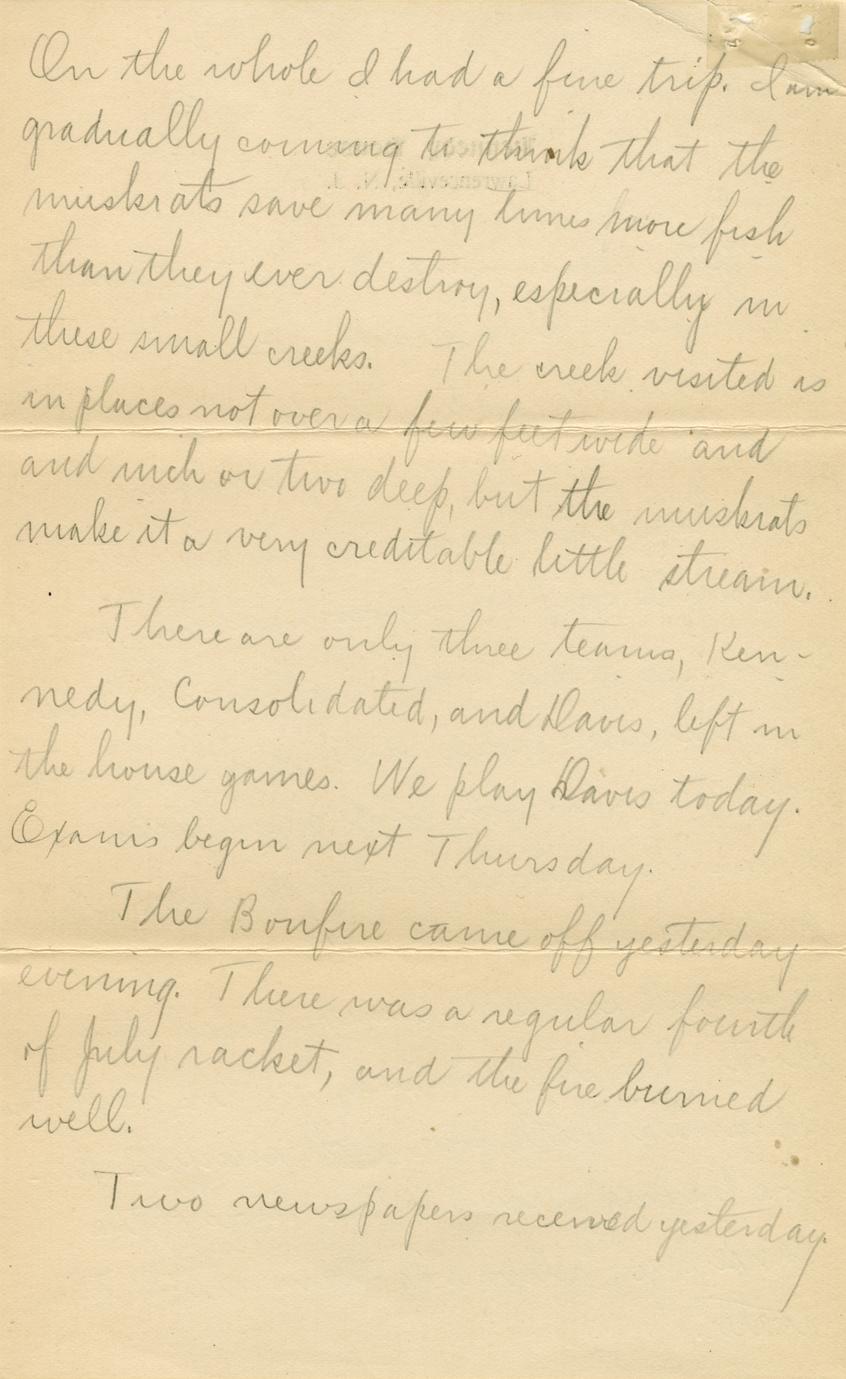 On the whole I had a fine trip. I am
gradually coming to think that the
muskrats save many times more fish
than they ever destroy, especially in
these small creeks. The creek visited is
in places not over a few feet wide and
and inch or two deep, but the muskrats
make it a very creditable little stream.
There are only three teams, Ken-
nedy, Consolidated, and Davis, left in
the house games. We play Davis today.
Exams begin next Thursday.
The Bonfire came off yesterday
evening. There was a regular fourth
of July racket, and the fire burned
well.
Two newspapers received yesterday.